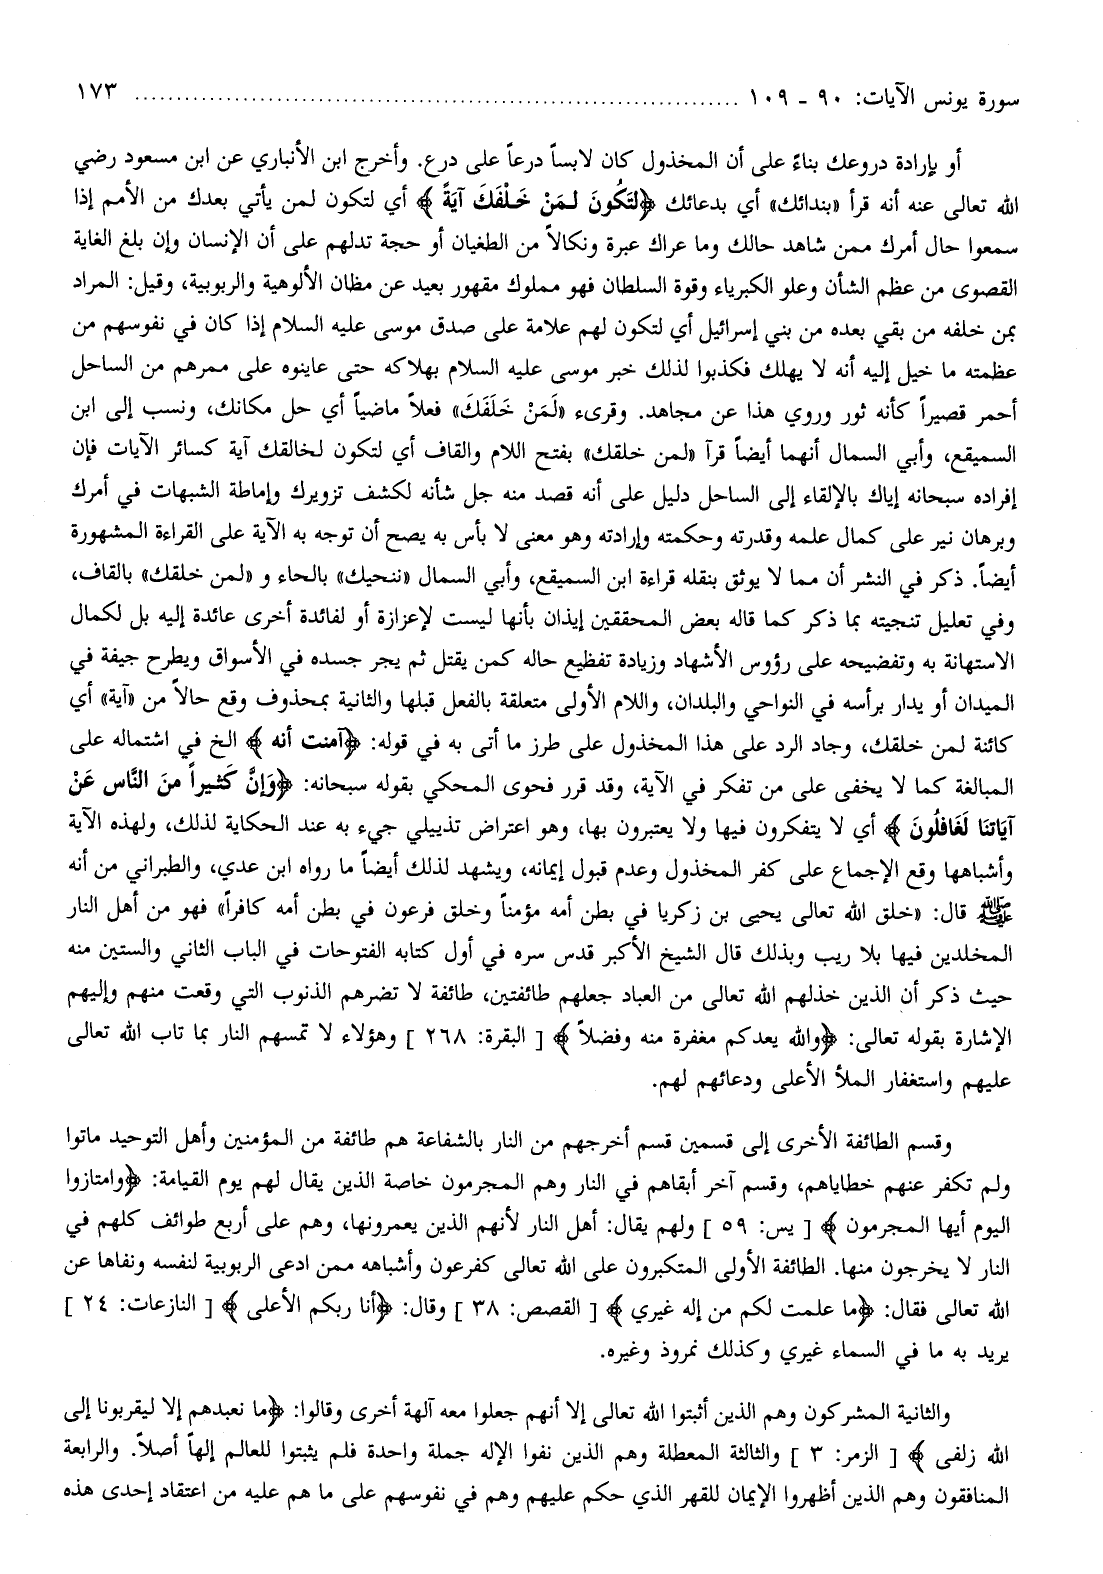 سورة يونس الآيات: ٩٠ - ١٠٩ ........................................................................ ١٧٣
أو بإرادة دروعك بناءً على أن المخذول كان لابساً درعاً على درع. وأخرج ابن الأنباري عن ابن مسعود رضي
الله تعالى عنه أنه قرأ «بندائك» أي بدعائك ﴿لتَكُونَ لـمَنْ خَـلْفَكَ آيَةً﴾ أي لتكون لمن يأتي بعدك من الأمم إذا
سمعوا حال أمرك ممن شاهد حالك وما عراك عبرة ونكالاً من الطغيان أو حجة تدلهم على أن الإنسان وإن بلغ الغاية
القصوى من عظم الشأن وعلو الكبرياء وقوة السلطان فهو مملوك مقهور بعيد عن مظان الألوهية والربوبية، وقيل: المراد
بمن خلفه من بقي بعده من بني إسرائيل أي لتكون لهم علامة على صدق موسى عليه السلام إذا كان في نفوسهم من
عظمته ما خيل إليه أنه لا يهلك فكذبوا لذلك خبر موسى عليه السلام بهلاكه حتى عاينوه على ممرهم من الساحل
أحمر قصيراً كأنه ثور وروي هذا عن مجاهد. وقرىء «لَمَنْ خَلَفَكَ» فعلاً ماضياً أي حل مكانك، ونسب إلى ابن
السميقع، وأبي السمال أنهما أيضاً قرآ «لمن خلقك» بفتح اللام والقاف أي لتكون لخالقك آية كسائر الآيات فإن
إفراده سبحانه إياك بالإلقاء إلى الساحل دليل على أنه قصد منه جل شأنه لكشف تزويرك وإماطة الشبهات في أمرك
وبرهان نير على كمال علمه وقدرته وحكمته وإرادته وهو معنى لا بأس به يصح أن توجه به الآية على القراءة المشهورة
أيضاً. ذكر في النشر أن مما لا يوثق بنقله قراءة ابن السميقع، وأبي السمال «ننحيك» بالحاء و «لمن خلقك» بالقاف،
وفي تعليل تنجيته بما ذكر كما قاله بعض المحققين إيذان بأنها ليست لإعزازة أو لفائدة أخرى عائدة إليه بل لكمال
الاستهانة به وتفضيحه على رؤوس الأشهاد وزيادة تفظيع حاله كمن يقتل ثم يجر جسده في الأسواق ويطرح جيفة في
الميدان أو يدار برأسه في النواحي والبلدان، واللام الأولى متعلقة بالفعل قبلها والثانية بمحذوف وقع حالاً من «آية» أي
كائنة لمن خلقك، وجاد الرد على هذا المخذول على طرز ما أتى به في قوله: ﴿آمنت أنه﴾ الخ في اشتماله على
المبالغة كما لا يخفى على من تفكر في الآية، وقد قرر فحوى المحكي بقوله سبحانه: ﴿وَإنَّ كَثيراً منَ النَّاس عَنْ
آيَاتنَا لَغَافلُونَ﴾ أي لا يتفكرون فيها ولا يعتبرون بها، وهو اعتراض تذييلي جيء به عند الحكاية لذلك، ولهذه الآية
وأشباهها وقع الإجماع على كفر المخذول وعدم قبول إيمانه، ويشهد لذلك أيضاً ما رواه ابن عدي، والطبراني من أنه
ﷺ قال: «خلق الله تعالى يحيى بن زكريا في بطن أمه مؤمناً وخلق فرعون في بطن أمه كافراً» فهو من أهل النار
المخلدين فيها بلا ريب وبذلك قال الشيخ الأكبر قدس سره في أول كتابه الفتوحات في الباب الثاني والستين منه
حيث ذكر أن الذين خذلهم الله تعالى من العباد جعلهم طائفتين، طائفة لا تضرهم الذنوب التي وقعت منهم وإليهم
الإشارة بقوله تعالى: ﴿والله يعدكم مغفرة منه وفضلاً﴾ [ البقرة: ٢٦٨ ] وهؤلاء لا تمسهم النار بما تاب الله تعالى
عليهم واستغفار الملأ الأعلى ودعائهم لهم.
وقسم الطائفة الأخرى إلى قسمين قسم أخرجهم من النار بالشفاعة هم طائفة من المؤمنين وأهل التوحيد ماتوا
ولم تكفر عنهم خطاياهم، وقسم آخر أبقاهم في النار وهم المجرمون خاصة الذين يقال لهم يوم القيامة: ﴿وامتازوا
اليوم أيها المجرمون﴾ [ يس: ٥٩ ] ولهم يقال: أهل النار لأنهم الذين يعمرونها، وهم على أربع طوائف كلهم في
النار لا يخرجون منها. الطائفة الأولى المتكبرون على الله تعالى كفرعون وأشباهه ممن ادعى الربوبية لنفسه ونفاها عن
الله تعالى فقال: ﴿ما علمت لكم من إله غيري﴾ [ القصص: ٣٨ ] وقال: ﴿أنا ربكم الأعلى﴾ [ النازعات: ٢٤ ]
يريد به ما في السماء غيري وكذلك نمروذ وغيره.
والثانية المشركون وهم الذين أثبتوا الله تعالى إلا أنهم جعلوا معه آلهة أخرى وقالوا: ﴿ما نعبدهم إلا ليقربونا إلى
الله زلفى﴾ [ الزمر: ٣ ] والثالثة المعطلة وهم الذين نفوا الإله جملة واحدة فلم يثبتوا للعالم إلهاً أصلاً. والرابعة
المنافقون وهم الذين أظهروا الإيمان للقهر الذي حكم عليهم وهم في نفوسهم على ما هم عليه من اعتقاد إحدى هذه